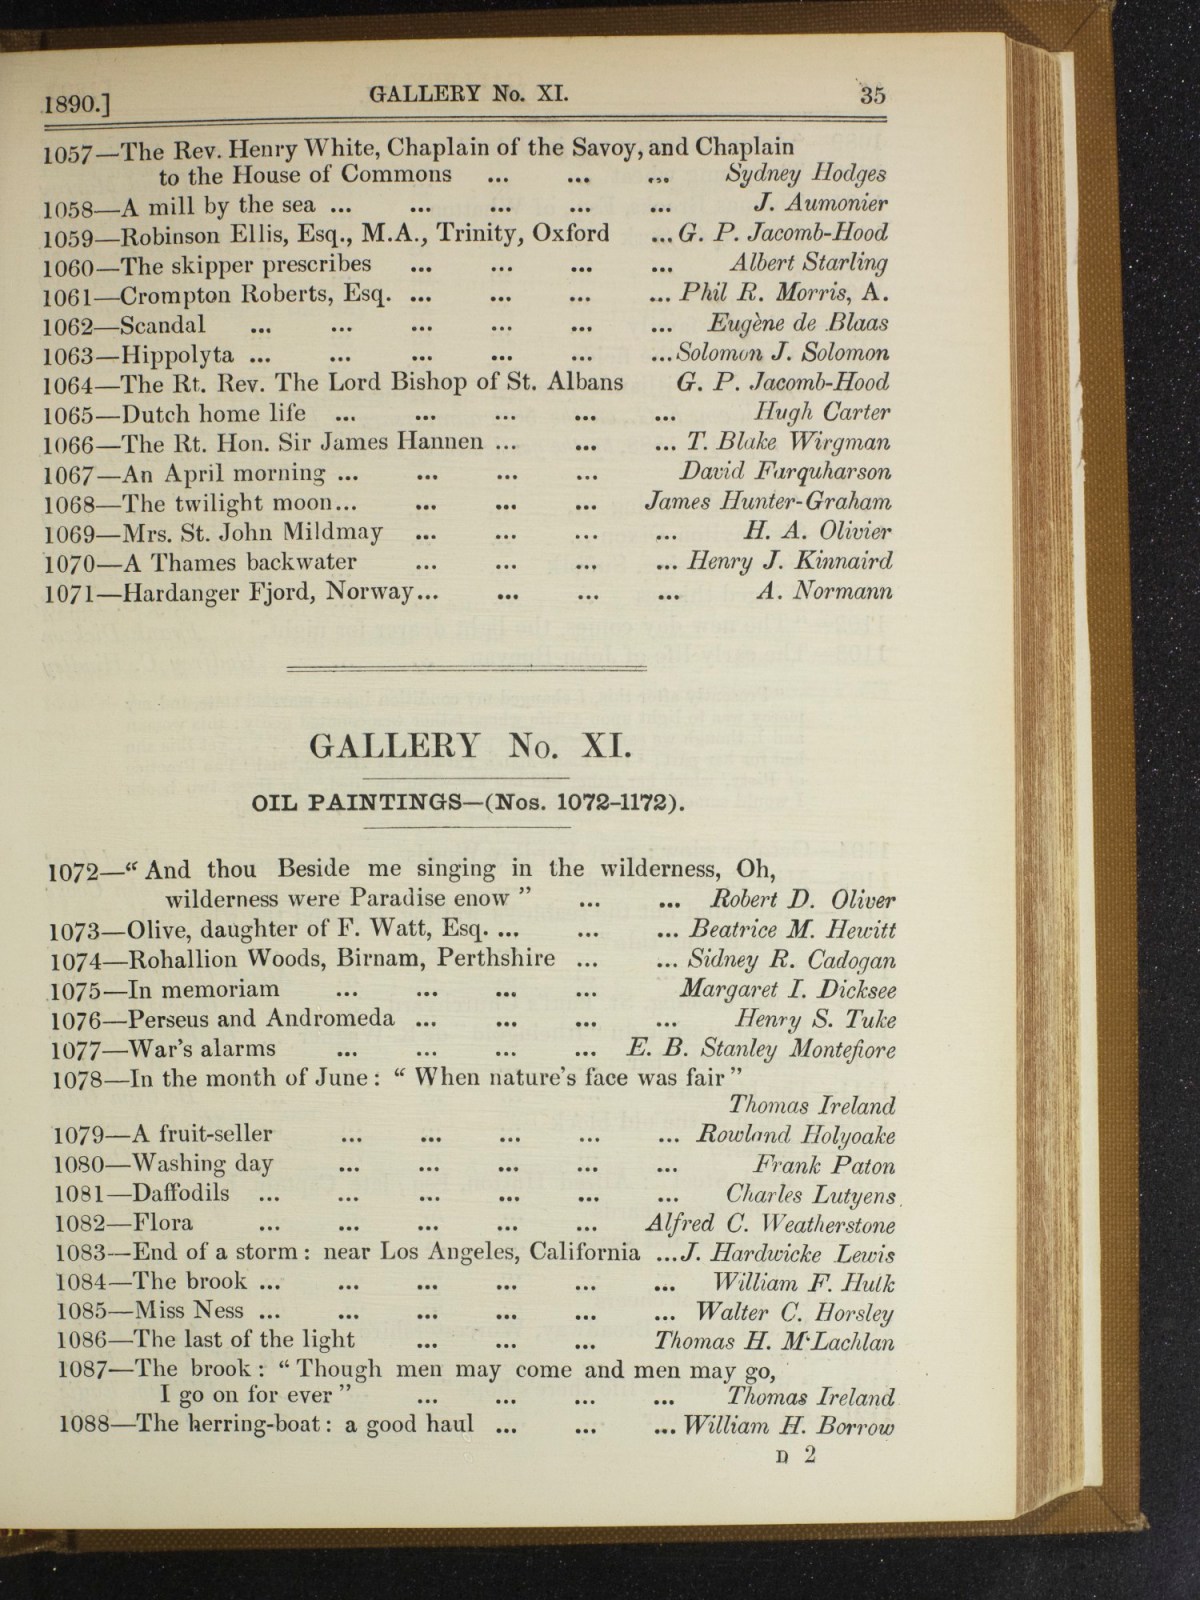 1890.] GALLERY No. XI. 35
1057—The Rev. Henry White, Chaplain of the Savoy, and Chaplain
to the House of Commons ... ... ... Sydney Hodges
1058—A mill by the sea ... ... ... ... ... J. Aumonier
1059—Robinson Ellis, Esq., M.A., Trinity, Oxford ... G. P. Jacomb-Hood
1060—The skipper prescribes ... ... ... ... Albert Starling
1061—Crompton Roberts, Esq. ... ... ... ... Phil R. Morris, A.
1062—Scandal ... ... ... ... ... ... Eugène de Blaas
1063—Hippolyta ... ... ... ... ... ... Solomon J. Solomon
1064—The Rt. Rev. The Lord Bishop of St. Albans G. P. Jacomb-Hood
1065—Dutch home life ... ... ... ... ... Hugh Carter
1066—The Rt. Hon. Sir James Hannen ... ... ... T. Blake Wirgman
1067—An April morning ... ... ... ... David Farquharson
1068—The twilight moon... ... ... ... James Hunter-Graham
1069—Mrs. St. John Mildmay ... ... ... ... H. A. Olivier
1070—A Thames backwater ... ... ... ... Henry J. Kinnaird
1071—Hardanger Fjord, Norway... ... ... ... A. Normann
GALLERY No. XI.
OIL PAINTINGS—(Nos. 1072-1172).
1072—“ And thou Beside me singing in the wilderness, Oh,
wilderness were Paradise enow ” ... ... Robert D. Oliver
1073—Olive, daughter of F. Watt, Esq. ... ... ... Beatrice M. Hewitt
1074—Rohallion Woods, Birnam, Perthshire ... ... Sidney R. Cadogan
1075—In memoriam ... ... ... ... Margaret I. Dicksee
1076—Perseus and Andromeda ... ... ... ... Henry S. Tuke
1077—War's alarms ... ... ... ... E. B. Stanley Montefiore
1078—In the month of June : “ When nature's face was fair ”
Thomas Ireland
1079—A fruit-seller ... ... ... ... ... Rowland Holyoake
1080—Washing day ... ... ... ... ... Frank Paton
1081—Daffodils ... ... ... ... ... ... Charles Lutyens
1082—Flora ... ... ... ... ... Alfred C. Weatherstone
1083—End of a storm : near Los Angeles, California ... J. Hardwicke Lewis
1084—The brook ... ... ... ... ... ... William F. Hulk
1085—Miss Ness ... ... ... ... ... ... Walter C. Horsley
1086—The last of the light ... ... ... Thomas H. M‘Lachlan
1087—The brook : “ Though men may come and men may go,
I go on for ever ” ... ... ... ... Thomas Ireland
1088—The herring-boat : a good haul ... ... ... William H. Borrow
D 2